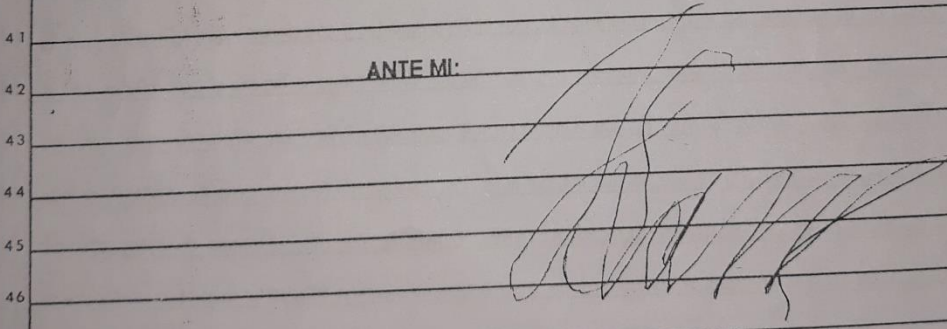 41
ANTE MI:
42
43
44
45
46